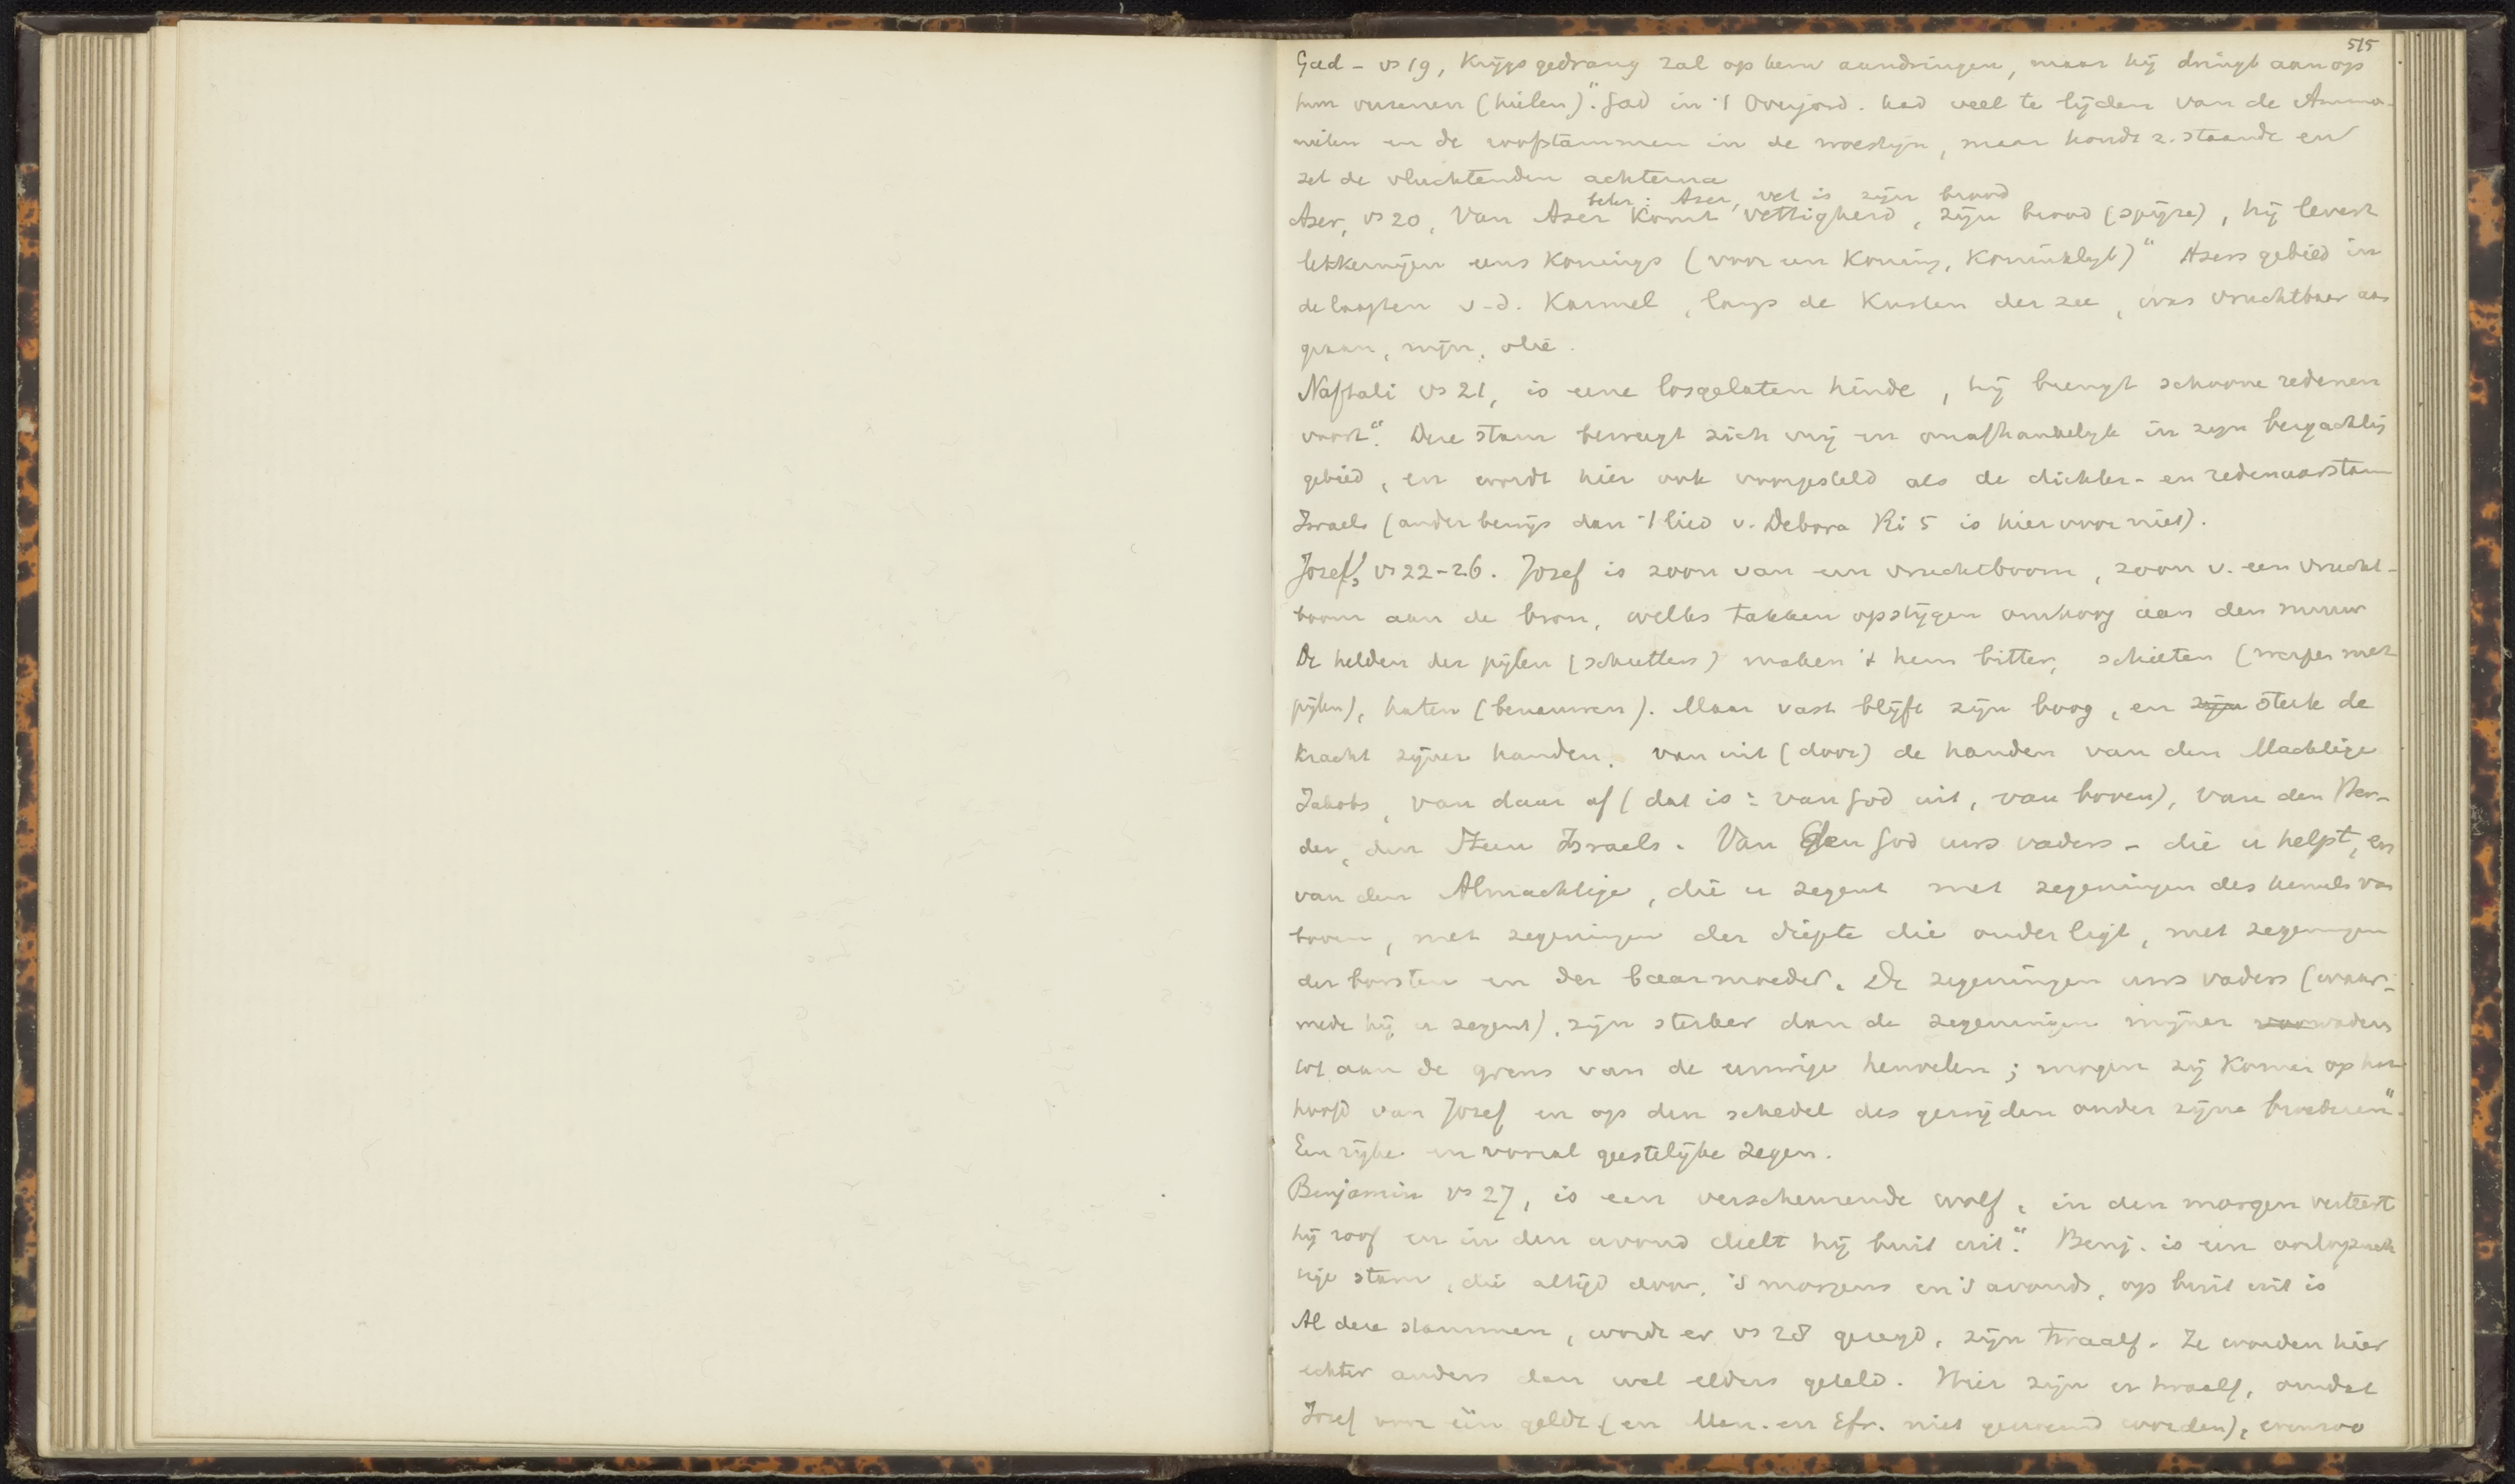 515
Gad - vs 19, Krijgsgedrang zal op hem aandringen, maar hij dringt aan op
hun versenen (hielen)". Gad in 't Overjord. had veel te lijden van de Ammo-
nieten en de roofstammen in de woestijn, maar houdt z. staande en
zet de vluchtenden achterna
beter: Aser, vet is zijn brood
Aser, vs 20, Van Aser komt vettigheid, zijn brood (spijze), hij levert
lekkernijen eens Konings (voor een Koning, Koninklijk)" Asers gebied in
de laagten v.d. Karmel, langs de Kusten der zee, was vruchtbaar aan
graan, wijn, olie.
Naftali vs 21, is eene losgelaten hinde, hij brengt schoone redenen
voort". Deze stam beweegt zich vrij en onafhankelijk in zijn bergachtig
gebied, en wordt hier ook voorgesteld als de dichter- en redenaarstam
Israels (ander bewijs dan 't lied v. Debora Ri 5 is hiervoor niet).
Jozef, vs 22-26. Jozef is zoon van een vruchtboom, zoon v. een vrucht-
boom aan de bron, welks takken opstijgen omhoog aan den muur
De helden der pijlen (schutters) maken 't hem bitter, schieten (werpen met
pijlen), haten (benauwen). Maar vast blijft zijn boog, en zijn sterk de
Kracht zijner handen. van uit (door) de handen van den Machtige
Jakobs, van daar af (dat is: van God uit, van boven), van den Her-
der, den Steen Israels. Van den God uws vaders - die u helpt, en
van den Almachtige, die u zegent met zegeningen des hemels van
boven, met zegeningen der diepte die onder ligt, met zegeningen
der borsten en der baarmoeder. De zegeningen uws vaders (waar-
mede hij u zegent), zijn sterker dan de zegeningen mijner voorvaders
tot aan de grens van de eeuwige heuvelen; mogen zij Komen op het
hoofd van Jozef en op den schedel des gewijden onder zijne broederen".
Een rijke en vooral geestelijke zegen.
Benjamin vs 27, is een verscheurende wolf, in den morgen verteert
hij roof en in den avond deelt hij buit uit". Benj. is een oorlogzuch
tige stam, die altijd door, 's morgens en 's avonds, op buit uit is
Al deze stammen, wordt er vs 28 gezegd, zijn twaalf. Ze worden hier
echter anders dan wel elders geteld. Hier zijn er twaalf, omdat
Jozef voor één geldt (en Man. en Efr. niet genoemd worden), evenzoo